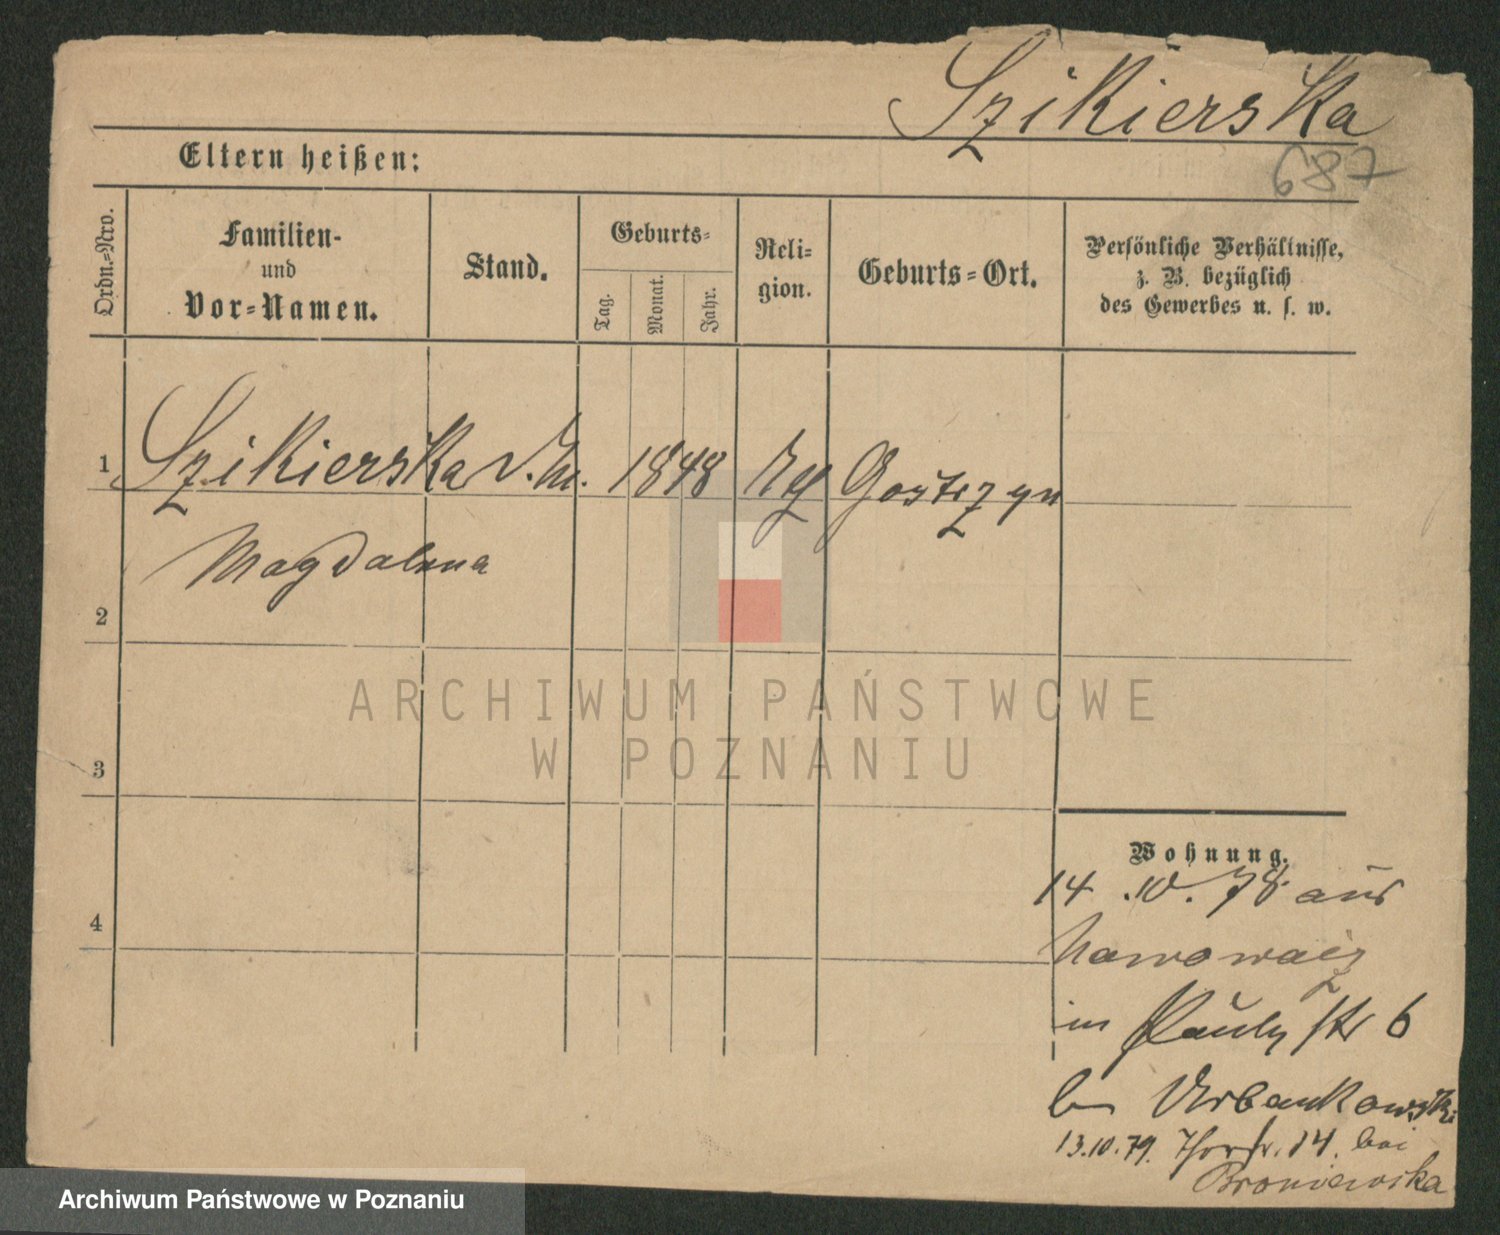 Szikierska
687
Eltern heißen:
Ordn.=Nro.
Familien-
und
Vor=Namen.
Stand.
Geburts=
Tag.
Monat.
Jahr.
Reli-
gion.
Geburts=Ort.
Persönliche Verhältnisse,
z. B. bezüglich
des Gewerbes u. s. w.
1
Szikierska 1848 Gostrzyn
Magdalena
2
ARCHIWUM PAŃSTWOWE
W POZNANIU
3
4
Wohnung.
14.10.78 aus
in Pauly str 6
b Urbankowski
13.10.79. Thorstr. 14. bei
Broniewska
Archiwum Państwowe w Poznaniu